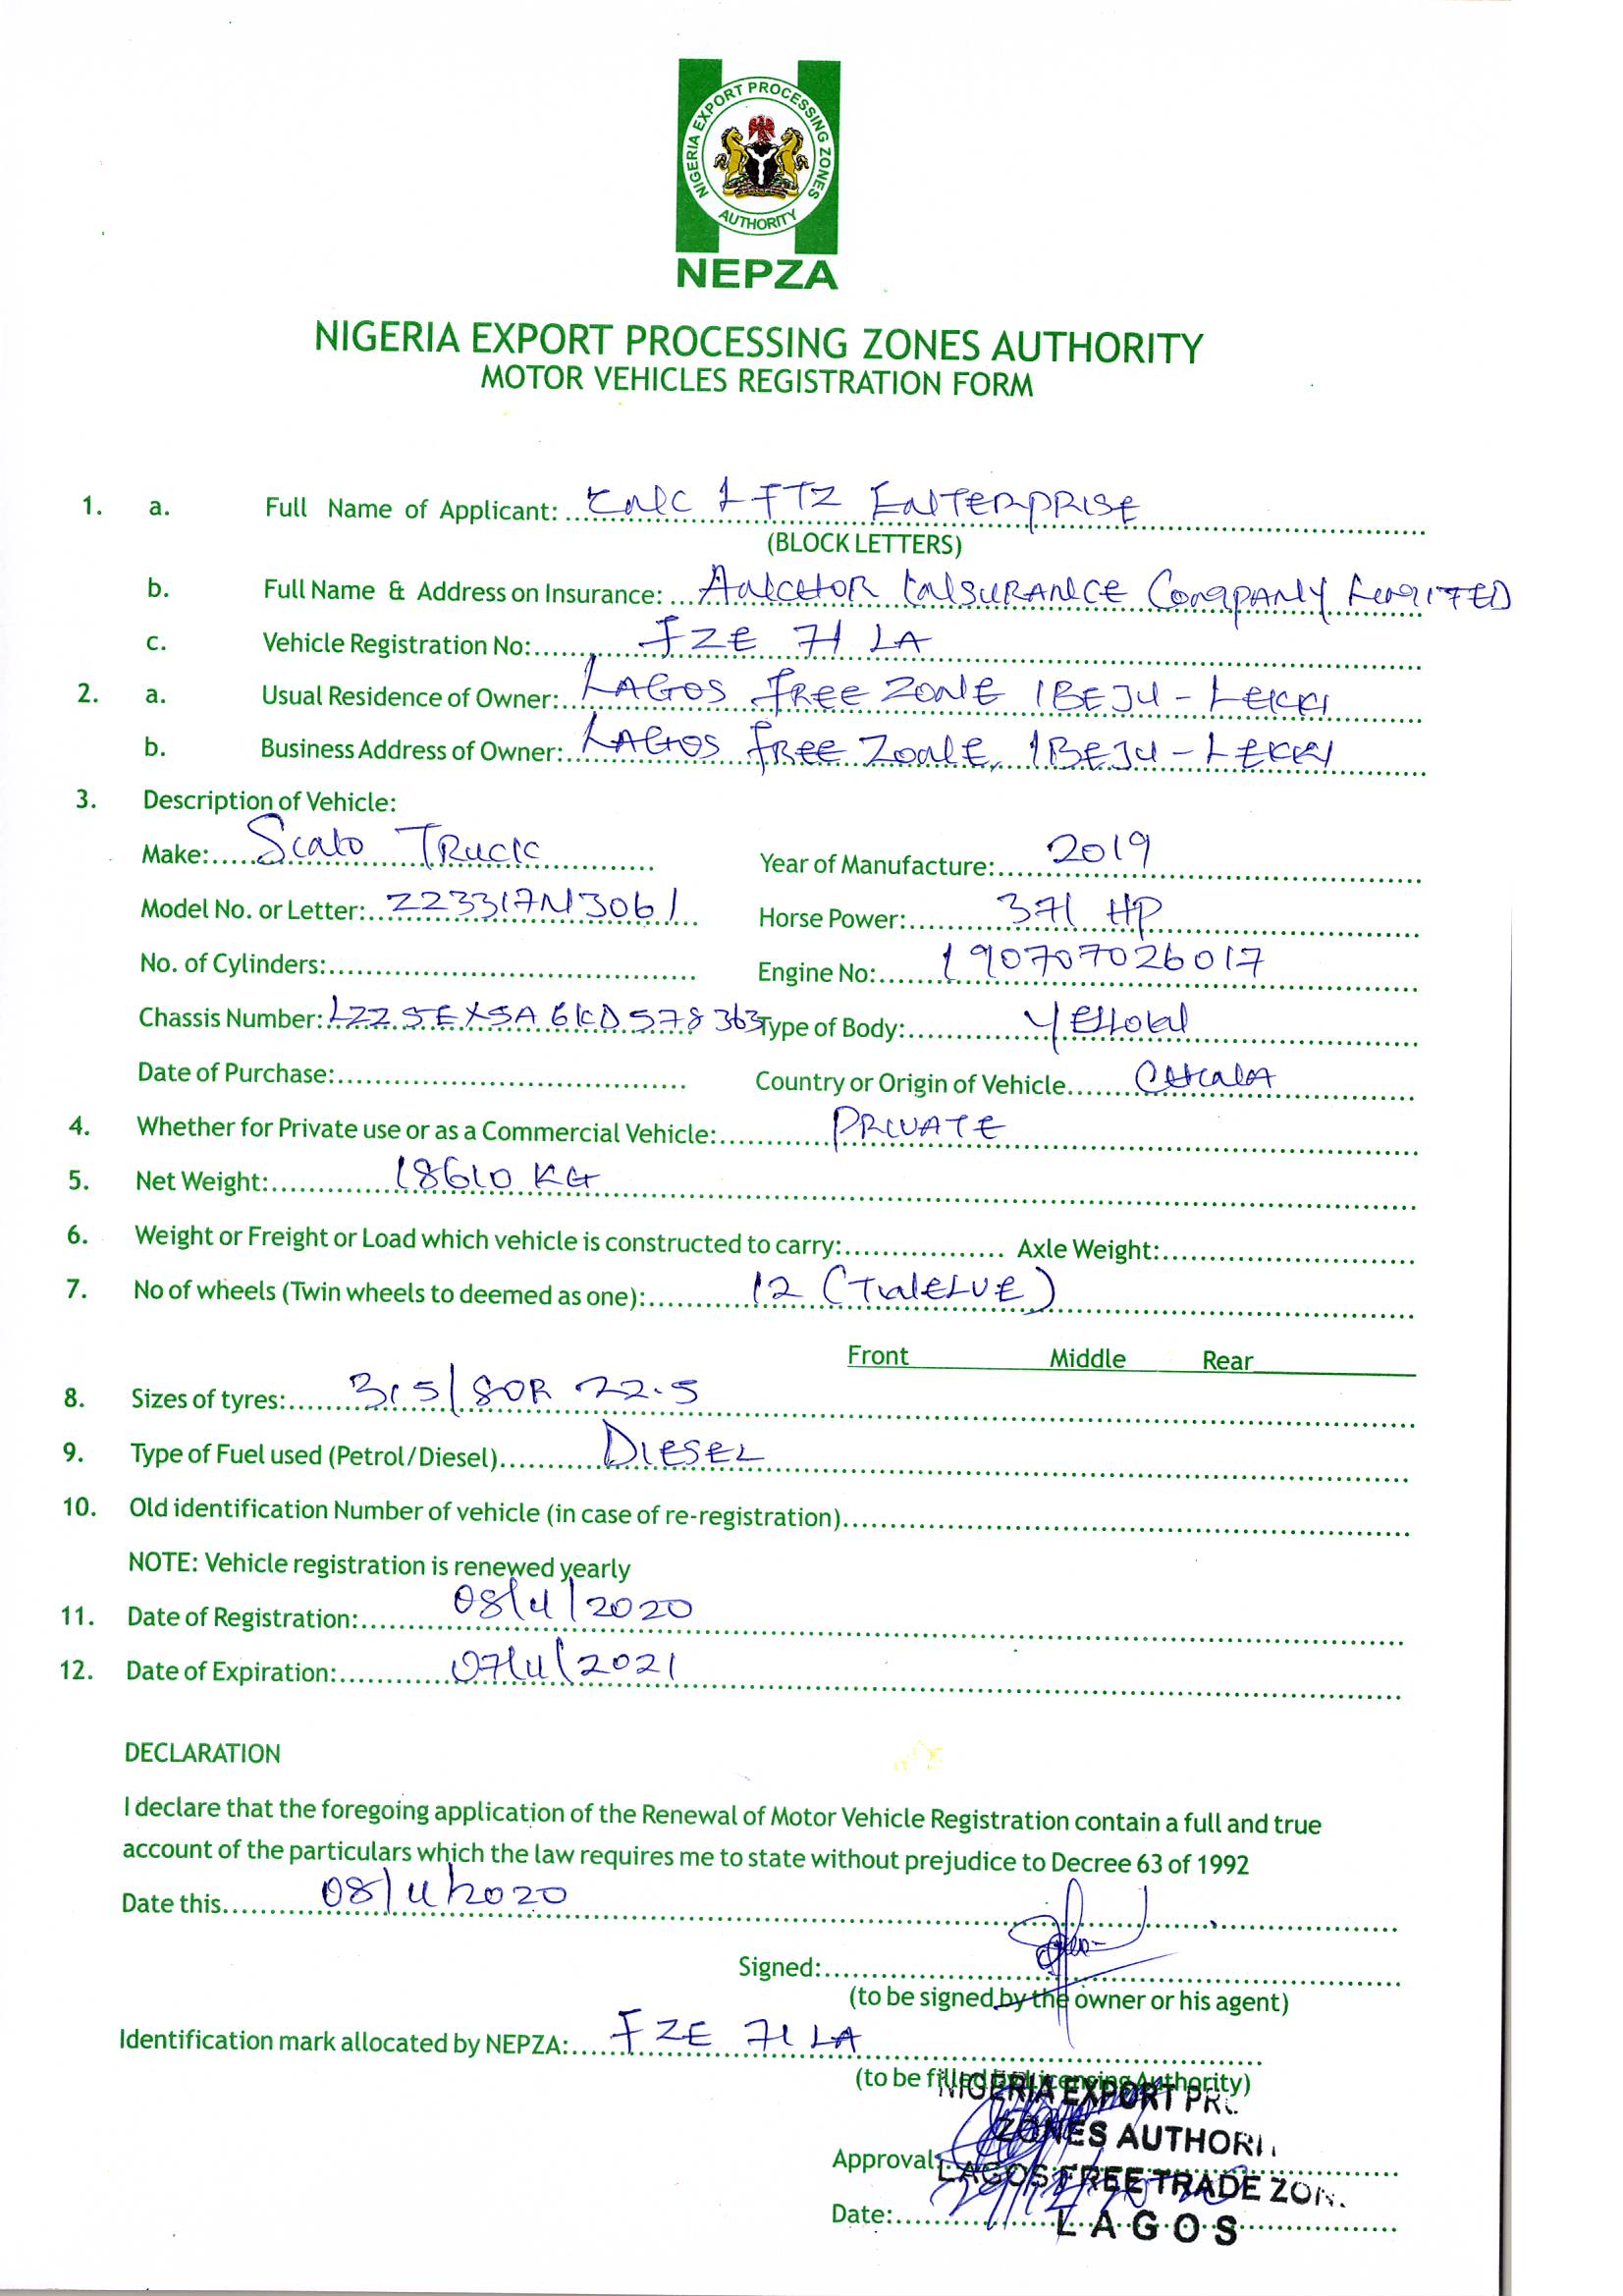 NIGERIA EXPORT PROCESSING ZONES
AUTHORITY
NEPZA
NIGERIA EXPORT PROCESSING ZONES AUTHORITY
MOTOR VEHICLES REGISTRATION FORM
1. a. Full Name of Applicant: LFTZ ENTERPRISE
(BLOCK LETTERS)
b. Full Name & Address on Insurance: ANCHOR INSURANCE COMPANY LIMITED
c. Vehicle Registration No: FZE 71 LA
2. a. Usual Residence of Owner: LAGOS FREE ZONE IBEJU - LEKKI
b. Business Address of Owner: LAGOS FREE ZONE, IBEJU - LEKKI
3. Description of Vehicle:
Make: TRUCK Year of Manufacture: 2019
Model No. or Letter: ZZ3317N3061 Horse Power: 371 HP
No. of Cylinders: Engine No: 190707026017
Chassis Number: LZZ5EXSA6KD578363 Type of Body: YELLOW
Date of Purchase: Country or Origin of Vehicle CHINA
4. Whether for Private use or as a Commercial Vehicle: PRIVATE
5. Net Weight: 18610 KG
6. Weight or Freight or Load which vehicle is constructed to carry: Axle Weight:
7. No of wheels (Twin wheels to deemed as one): 12 (TWELVE)
Front Middle Rear
8. Sizes of tyres: 315/80R 22.5
9. Type of Fuel used (Petrol/Diesel) DIESEL
10. Old identification Number of vehicle (in case of re-registration)
NOTE: Vehicle registration is renewed yearly
11. Date of Registration: 08/11/2020
12. Date of Expiration: 07/11/2021
DECLARATION
I declare that the foregoing application of the Renewal of Motor Vehicle Registration contain a full and true
account of the particulars which the law requires me to state without prejudice to Decree 63 of 1992
Date this 08/11/2020
Signed:
(to be signed by the owner or his agent)
Identification mark allocated by NEPZA: FZE 71 LA
(to be filled by Licensing Authority)
NIGERIA EXPORT PRO
ZONES AUTHORI
Approval:
LAGOS FREE TRADE ZON
Date:
LAGOS